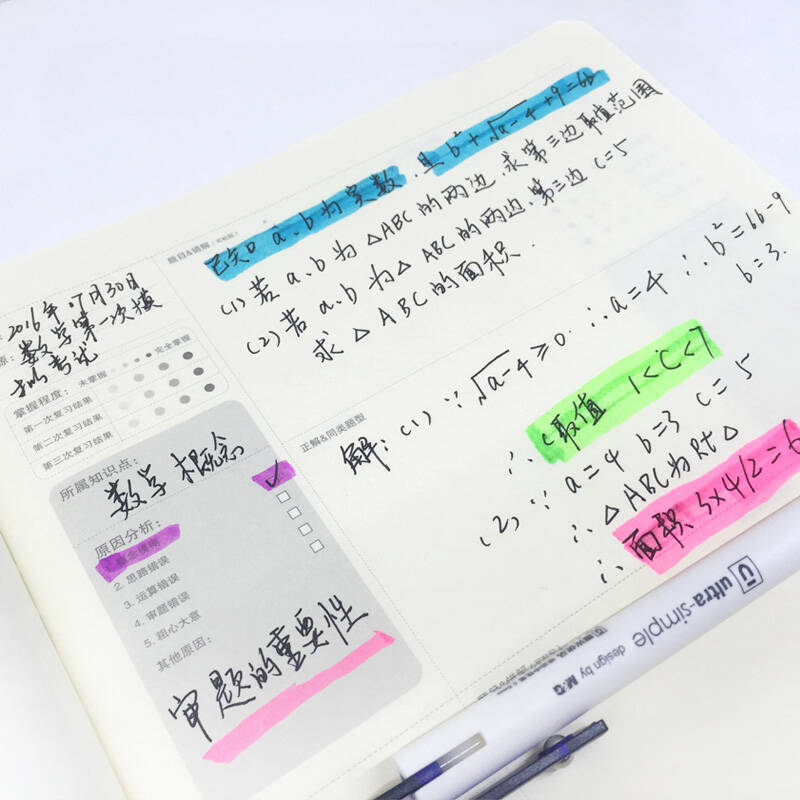 题目&错解
已知 a、b为实数,且 b²+√a-4+9=6b
(1)若 a、b 为△ABC的两边,求第三边取值范围
(2)若 a、b 为△ABC的两边,第三边 c=5
求△ABC的面积.
2016年07月30日
数学第一次模
拟考试
掌握程度: 未掌握 完全掌握
第一次复习结果
第二次复习结果
第三次复习结果
所属知识点:
数学概念
原因分析:
2. 思路错误
3. 运算错误
4. 审题错误
5. 粗心大意
其他原因:
审题的重要性
正解&同类题型
解:(1)∵√a-4≥0.∴a=4 ∴b²=6b-9
b=3.
∴c取值 1<C<7
(2)∵ a=4 b=3 c=5
∴△ABC为Rt△
∴面积 3×4/2=6
ultra-simple design by M&G